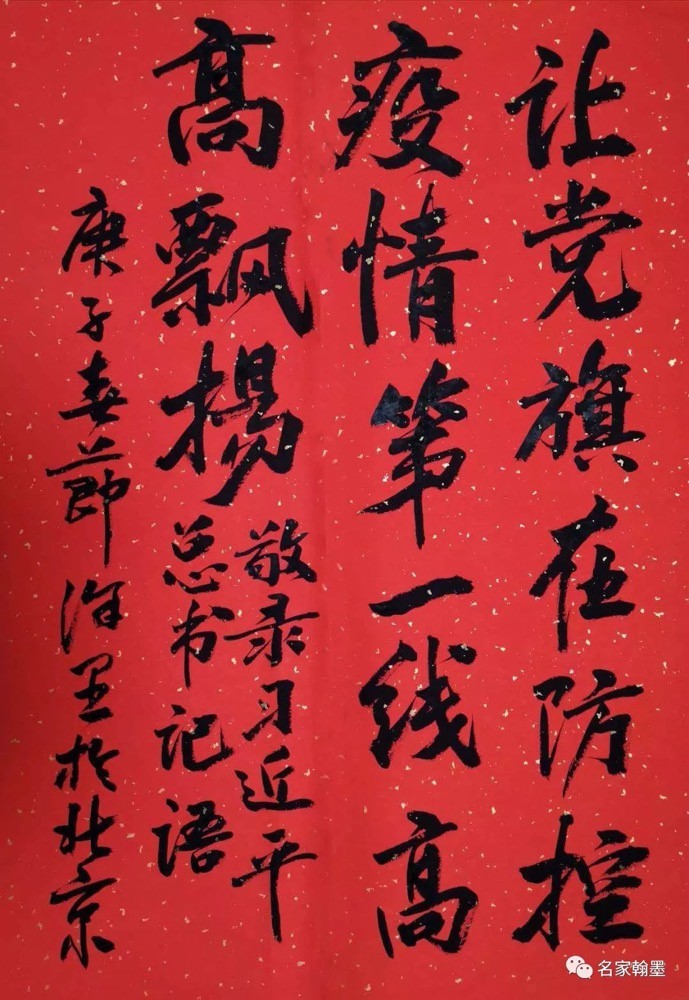 让党旗在防控
疫情第一线高
高飘扬
敬录习近平
总书记语
庚子春节 于北京
名家翰墨